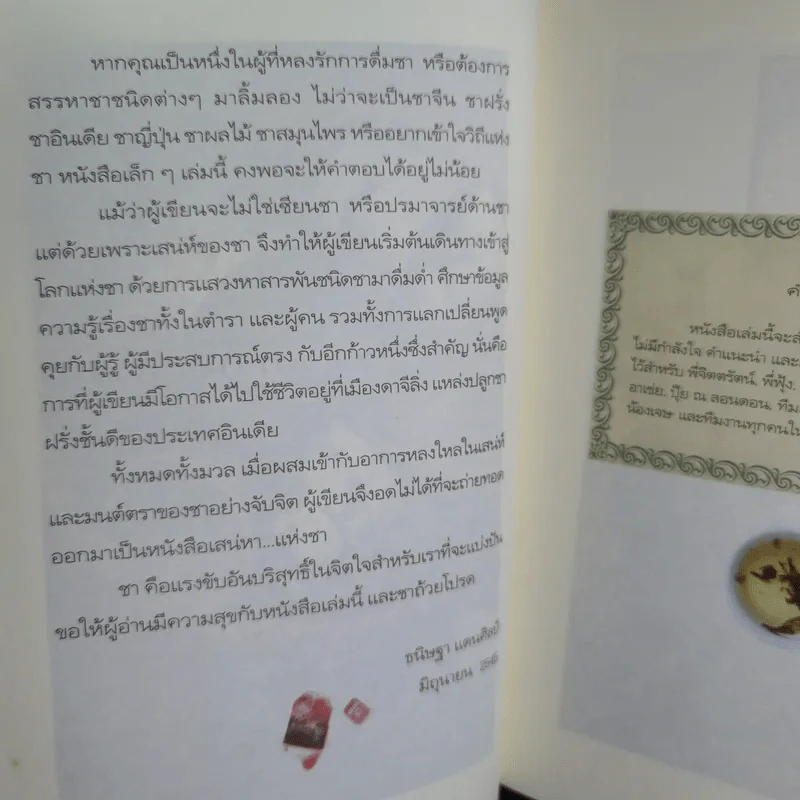 หากคุณเป็นหนึ่งในผู้ที่หลงรักการดื่มชา หรือต้องการ
สรรหาชาชนิดต่างๆ มาลิ้มลอง ไม่ว่าจะเป็นชาจีน ชาฝรั่ง
ชาอินเดีย ชาญี่ปุ่น ชาผลไม้ ชาสมุนไพร หรืออยากเข้าใจวิถีแห่ง
ชา หนังสือเล็ก ๆ เล่มนี้ คงพอจะให้คำตอบได้อยู่ไม่น้อย
แม้ว่าผู้เขียนจะไม่ใช่เซียนชา หรือปรมาจารย์ด้านชา
แต่ด้วยเพราะเสน่ห์ของชา จึงทำให้ผู้เขียนเริ่มต้นเดินทางเข้าสู่
โลกแห่งชา ด้วยการแสวงหาสารพันชนิดชามาดื่มด่ำ ศึกษาข้อมูล
ความรู้เรื่องชาทั้งในตำรา และผู้คน รวมทั้งการแลกเปลี่ยนพูด
คุยกับผู้รู้ ผู้มีประสบการณ์ตรง กับอีกก้าวหนึ่งซึ่งสำคัญ นั่นคือ
การที่ผู้เขียนมีโอกาสได้ไปใช้ชีวิตอยู่ที่เมืองดาจีลิ่ง แหล่งปลูกชา
ฝรั่งชั้นดีของประเทศอินเดีย
ทั้งหมดทั้งมวล เมื่อผสมเข้ากับอาการหลงใหลในเสน่ห์
และมนต์ตราของชาอย่างจับจิต ผู้เขียนจึงอดไม่ได้ที่จะถ่ายทอด
ออกมาเป็นหนังสือเสน่หา...แห่งชา
ชา คือแรงขับอันบริสุทธิ์ในจิตใจสำหรับเราที่จะแบ่งปัน
ขอให้ผู้อ่านมีความสุขกับหนังสือเล่มนี้ และชาถ้วยโปรด
ธนิษฐา แดนศิลป์
มิถุนายน
หนังสือเล่มนี้จะ
ไม่มีกำลังใจ คำแนะนำ และ
ไว้สำหรับ พี่จิตตรัตน์, พี่ฟุ้ง,
อาเซ่ย, ปุ๊ย ณ ลอนดอน, ทีม
น้องเจษ และทีมงานทุกคนใน